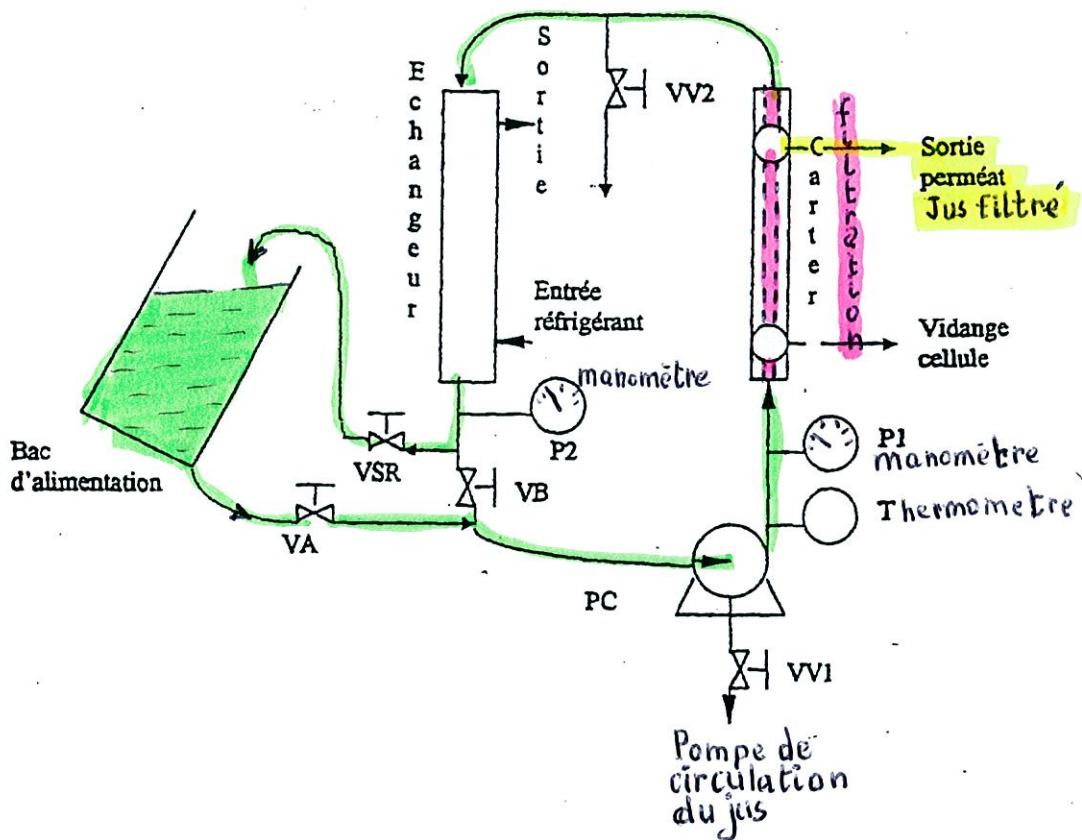 Echangeur
Sortie
VV2
Carter
filtration
Sortie
perméat
Jus filtré
Entrée
réfrigérant
Vidange
cellule
manomètre
P2
P1
manomètre
Thermomètre
Bac
d'alimentation
VSR
VB
VA
PC
VV1
Pompe de
circulation
du jus